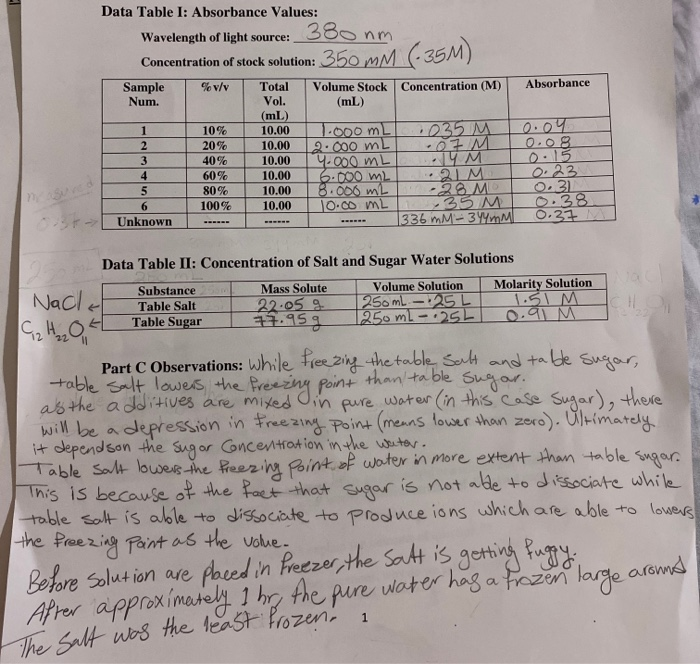 Data Table I: Absorbance Values:
Wavelength of light source: 380 nm
Concentration of stock solution: 350 mM (.35M)
Sample Num. % v/v Total Vol. (mL) Volume Stock (mL) Concentration (M) Absorbance
1 10% 10.00 1.000 mL .035 M 0.04
2 20% 10.00 2.000 mL .07 M 0.08
3 40% 10.00 4.000 mL .14 M 0.15
4 60% 10.00 6.000 mL .21 M 0.23
5 80% 10.00 8.000 mL .28 M 0.31
6 100% 10.00 10.00 mL .35 M 0.38
Unknown ------ ------ ------ 336 mM - 344 mM 0.37
Data Table II: Concentration of Salt and Sugar Water Solutions
Substance Mass Solute Volume Solution Molarity Solution
NaCl Table Salt 22.05 g 250 mL - .25 L 1.51 M
C12 H22 O11 Table Sugar 77.95 g 250 ml - .25L 0.91 M
Part C Observations: While freezing the table salt and table sugar,
table salt lowers the freezing point than table sugar.
as the additives are mixed in pure water (in this case sugar), there
will be a depression in freezing point (means lower than zero). Ultimately
it depends on the sugar concentration in the water.
Table salt lowers the freezing point of water in more extent than table sugar.
This is because of the fact that sugar is not able to dissociate while
table salt is able to dissociate to produce ions which are able to lowers
the freezing point as the value.
Before solution are placed in freezer, the salt is getting fuggy.
After approximately 1 hr, the pure water has a frozen large around
The salt was the least frozen.
1